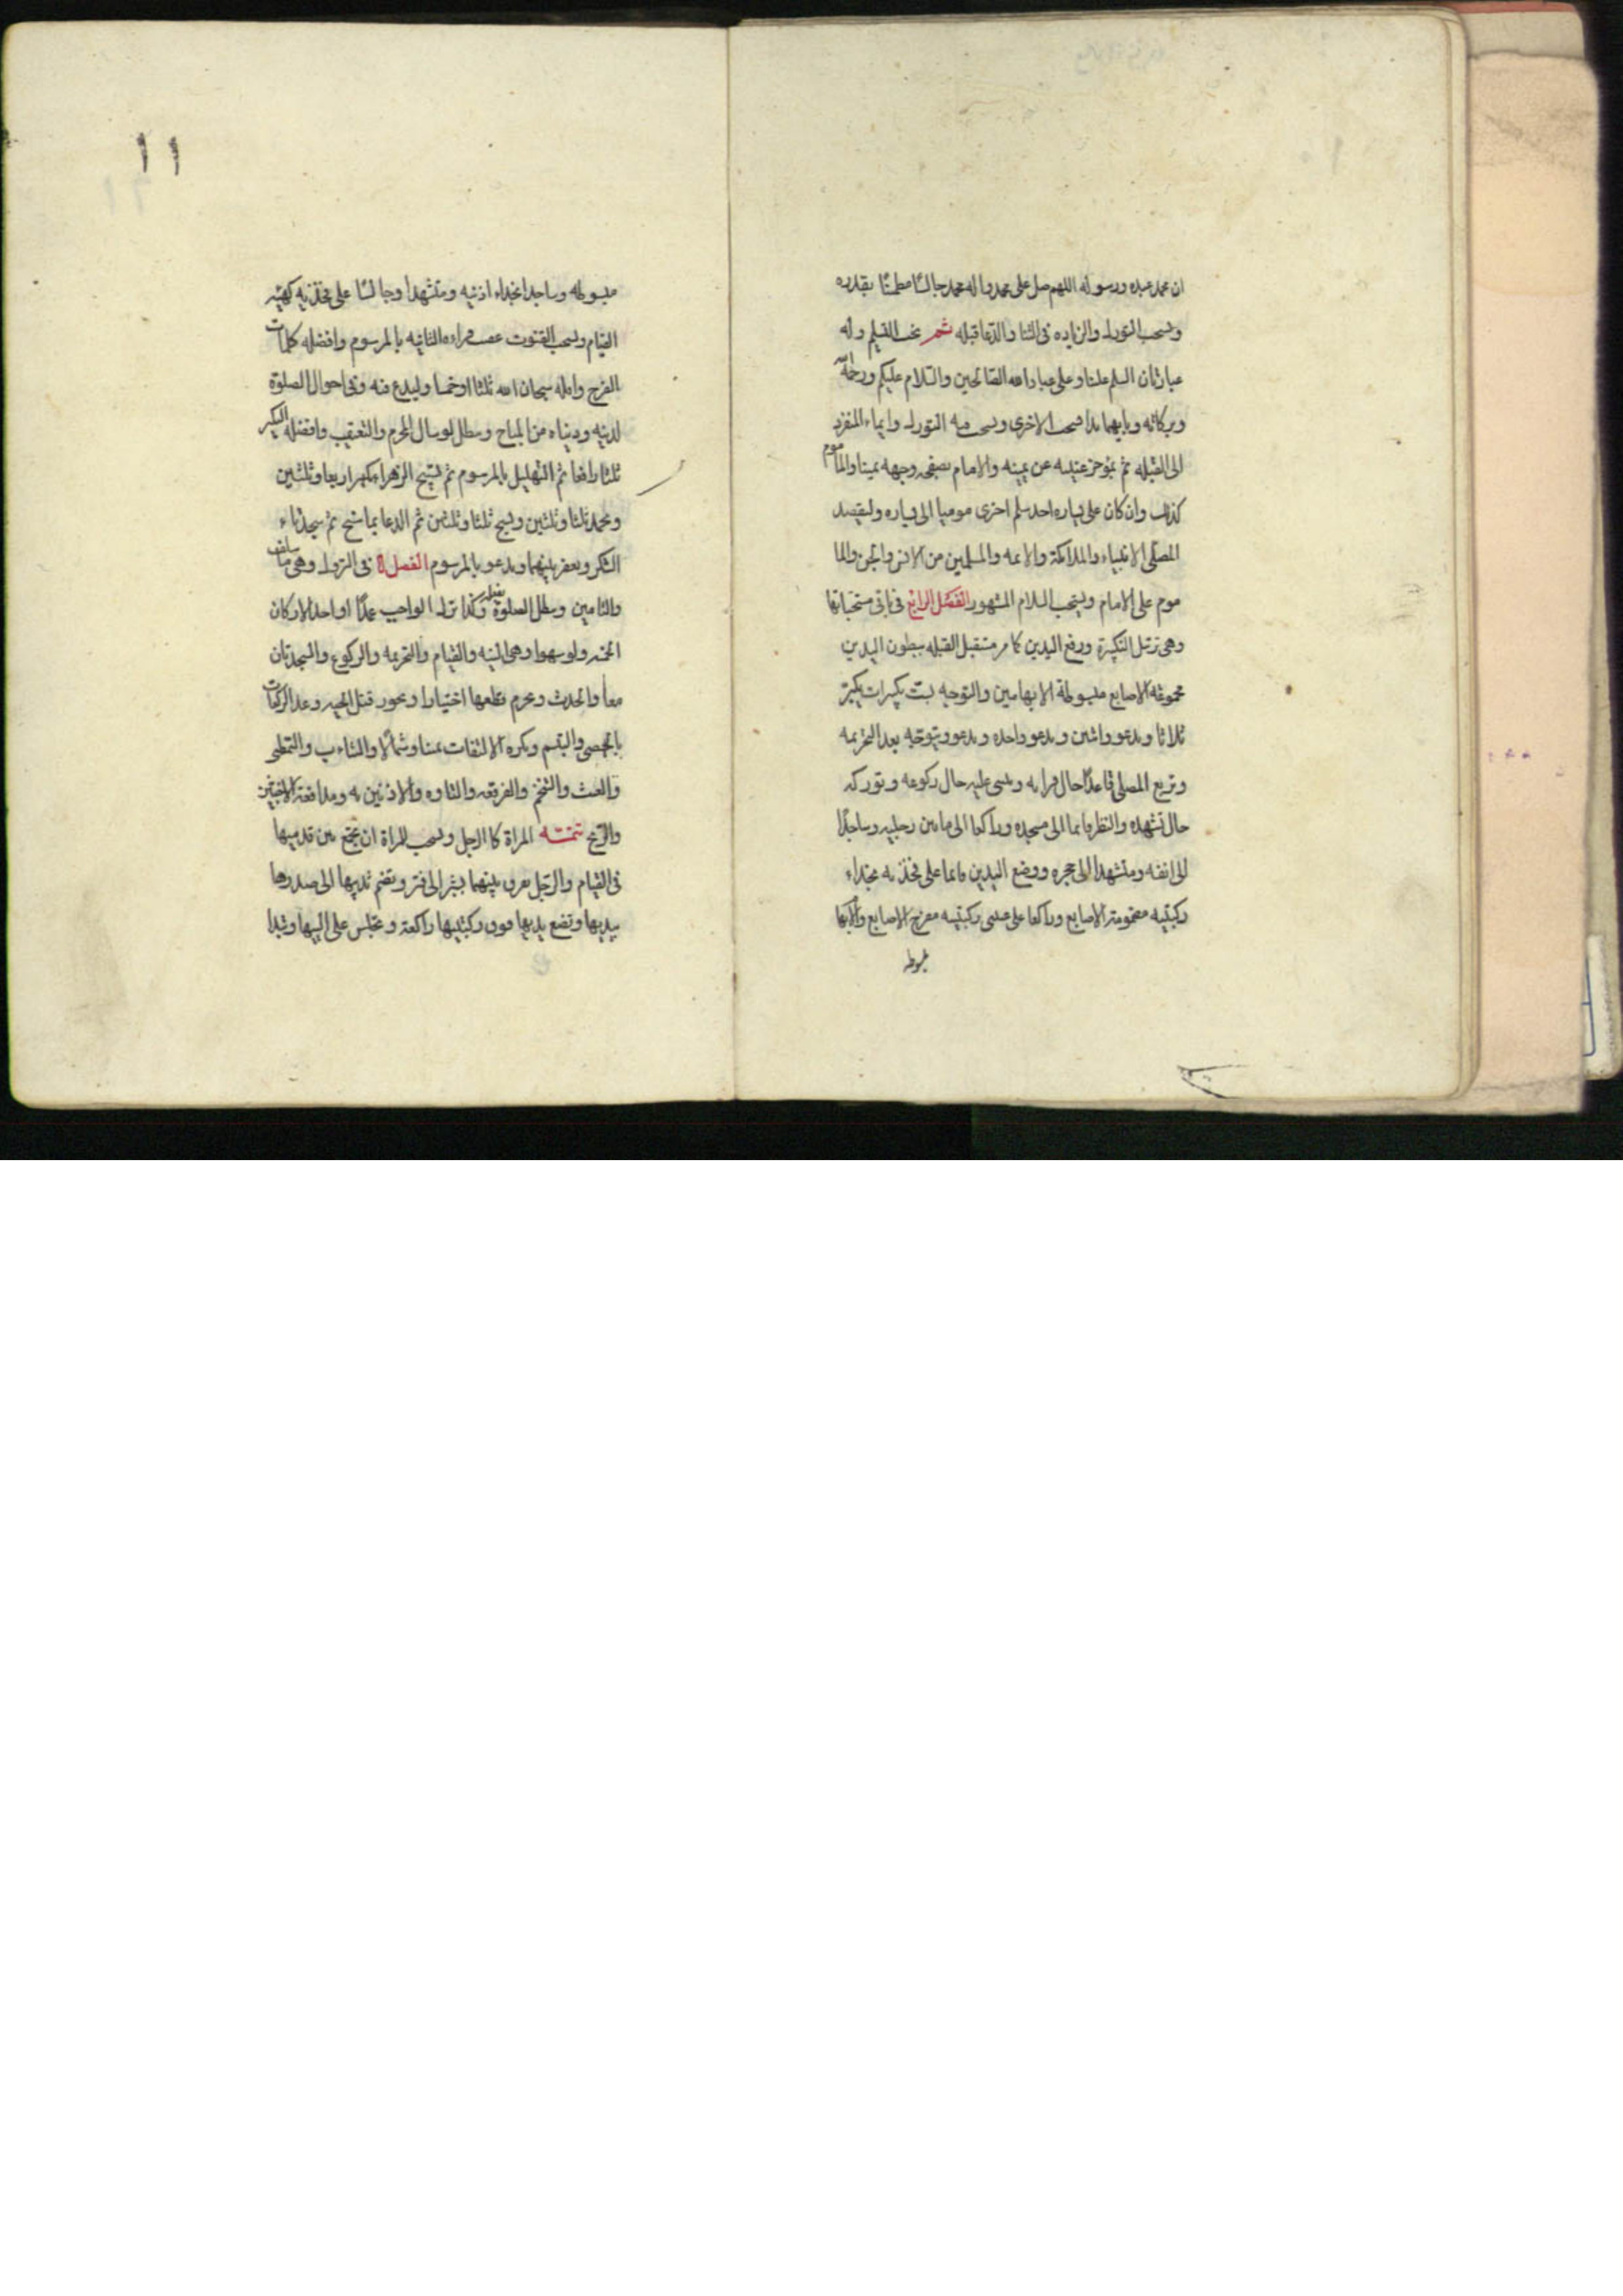 ان محمدا عبده ورسوله اللهم صل على محمد واله محمد جالسًا مطمئنًا بقدره
ويستحب التورك والزياده فى الثنا والدعا قبله ثم يجب التسليم وله
عبارتان السلم علينا وعلى عباد الله الصالحين والسلام عليكم ورحمة الله
وبركاته وبايهما بدا صحت الاخرى ويستحب فيه التورك وايماء المنفرد
الى القبله ثم بمؤخر عينيه عن يمينه والامام بصفحه وجهه يمينا والماموم
كذلك وان كان على يساره احد سلم اخرى موميا الى يساره وليقصد
المصلى الانبياء والملائكة والائمه والمسلمين من الانس والجن والما
موم على الامام ويستحب السلام المشهور الفصل الرابع فى باقى مستحباتها
وهى ترتيل التكبيرة ورفع اليدين كما مر مستقبل القبله ببطون اليدين
مجموعة الاصابع مبسوطة الابهامين والتوجه بست تكبيرات يكبر
ثلاثا ويدعو واثنين ويدعو وواحده ويدعو ويتوجه بعد التحريمه
وتربع المصلى قاعدًا حال قراءته ويثنى رجليه حال ركوعه وتوركه
حال تشهده والنظر قايما الى مسجده وراكعا الى ما بين رجليه وساجدًا
الى انفه ومتشهدا الى حجره ووضع اليدين قايما على فخذيه بحذاء
ركبتيه مضمومة الاصابع وراكعا على عينى ركبتيه مفرج الاصابع والابها
مبسوطه
١١
مبسوطه وساجدا بحذاء اذنيه ومتشهدا وجالسًا على فخذيه كهيئه
القيام ويستحب القنوت عقيب قراءه الثانيه بالمرسوم وافضله كلمات
الفرج واقله سبحان الله ثلثا او خمسا وليدع فيه وفى احوال الصلوة
لدينه ودنياه من المباح وتبطل لو سال المحرم والتعقيب وافضله التكبير
ثلثا رافعا ثم التهليل بالمرسوم ثم تسبيح الزهراء يكبر اربعا وثلثين
ويحمد ثلثا وثلثين ويسبح ثلثا وثلثين ثم الدعا بما سنح ثم سجدتاء
الشكر ويعفر بينهما ويدعو بالمرسوم الفصل ٥ فى التروك وهى ما سلف
والتامين وتبطل الصلوة بفعله وكذا ترك الواجب عمدًا او احد الاركان
الخمسه ولو سهوا وهى النيه والقيام والتحريمه والركوع والسجدتان
معا والحدث ويحرم قطعها اختيارا ويجوز قتل الحيه وعد الركعات
بالحصى والتبسم ويكره الالتفات يمينا وشمالا والتثاءب والتمطى
والعبث والتنخم والفرقعه والتاوه والانين به ومدافعة الاخبثين
والريح تتمته المراة كالرجل ويستحب للمراة ان تجمع بين قدميها
فى القيام والرجل يفرق بينهما بشبر الى فتر وتضم ثدييها الى صدرها
بيديها وتضع يديها فوق ركبتيها راكعة وتجلس على اليتيها وتبدا